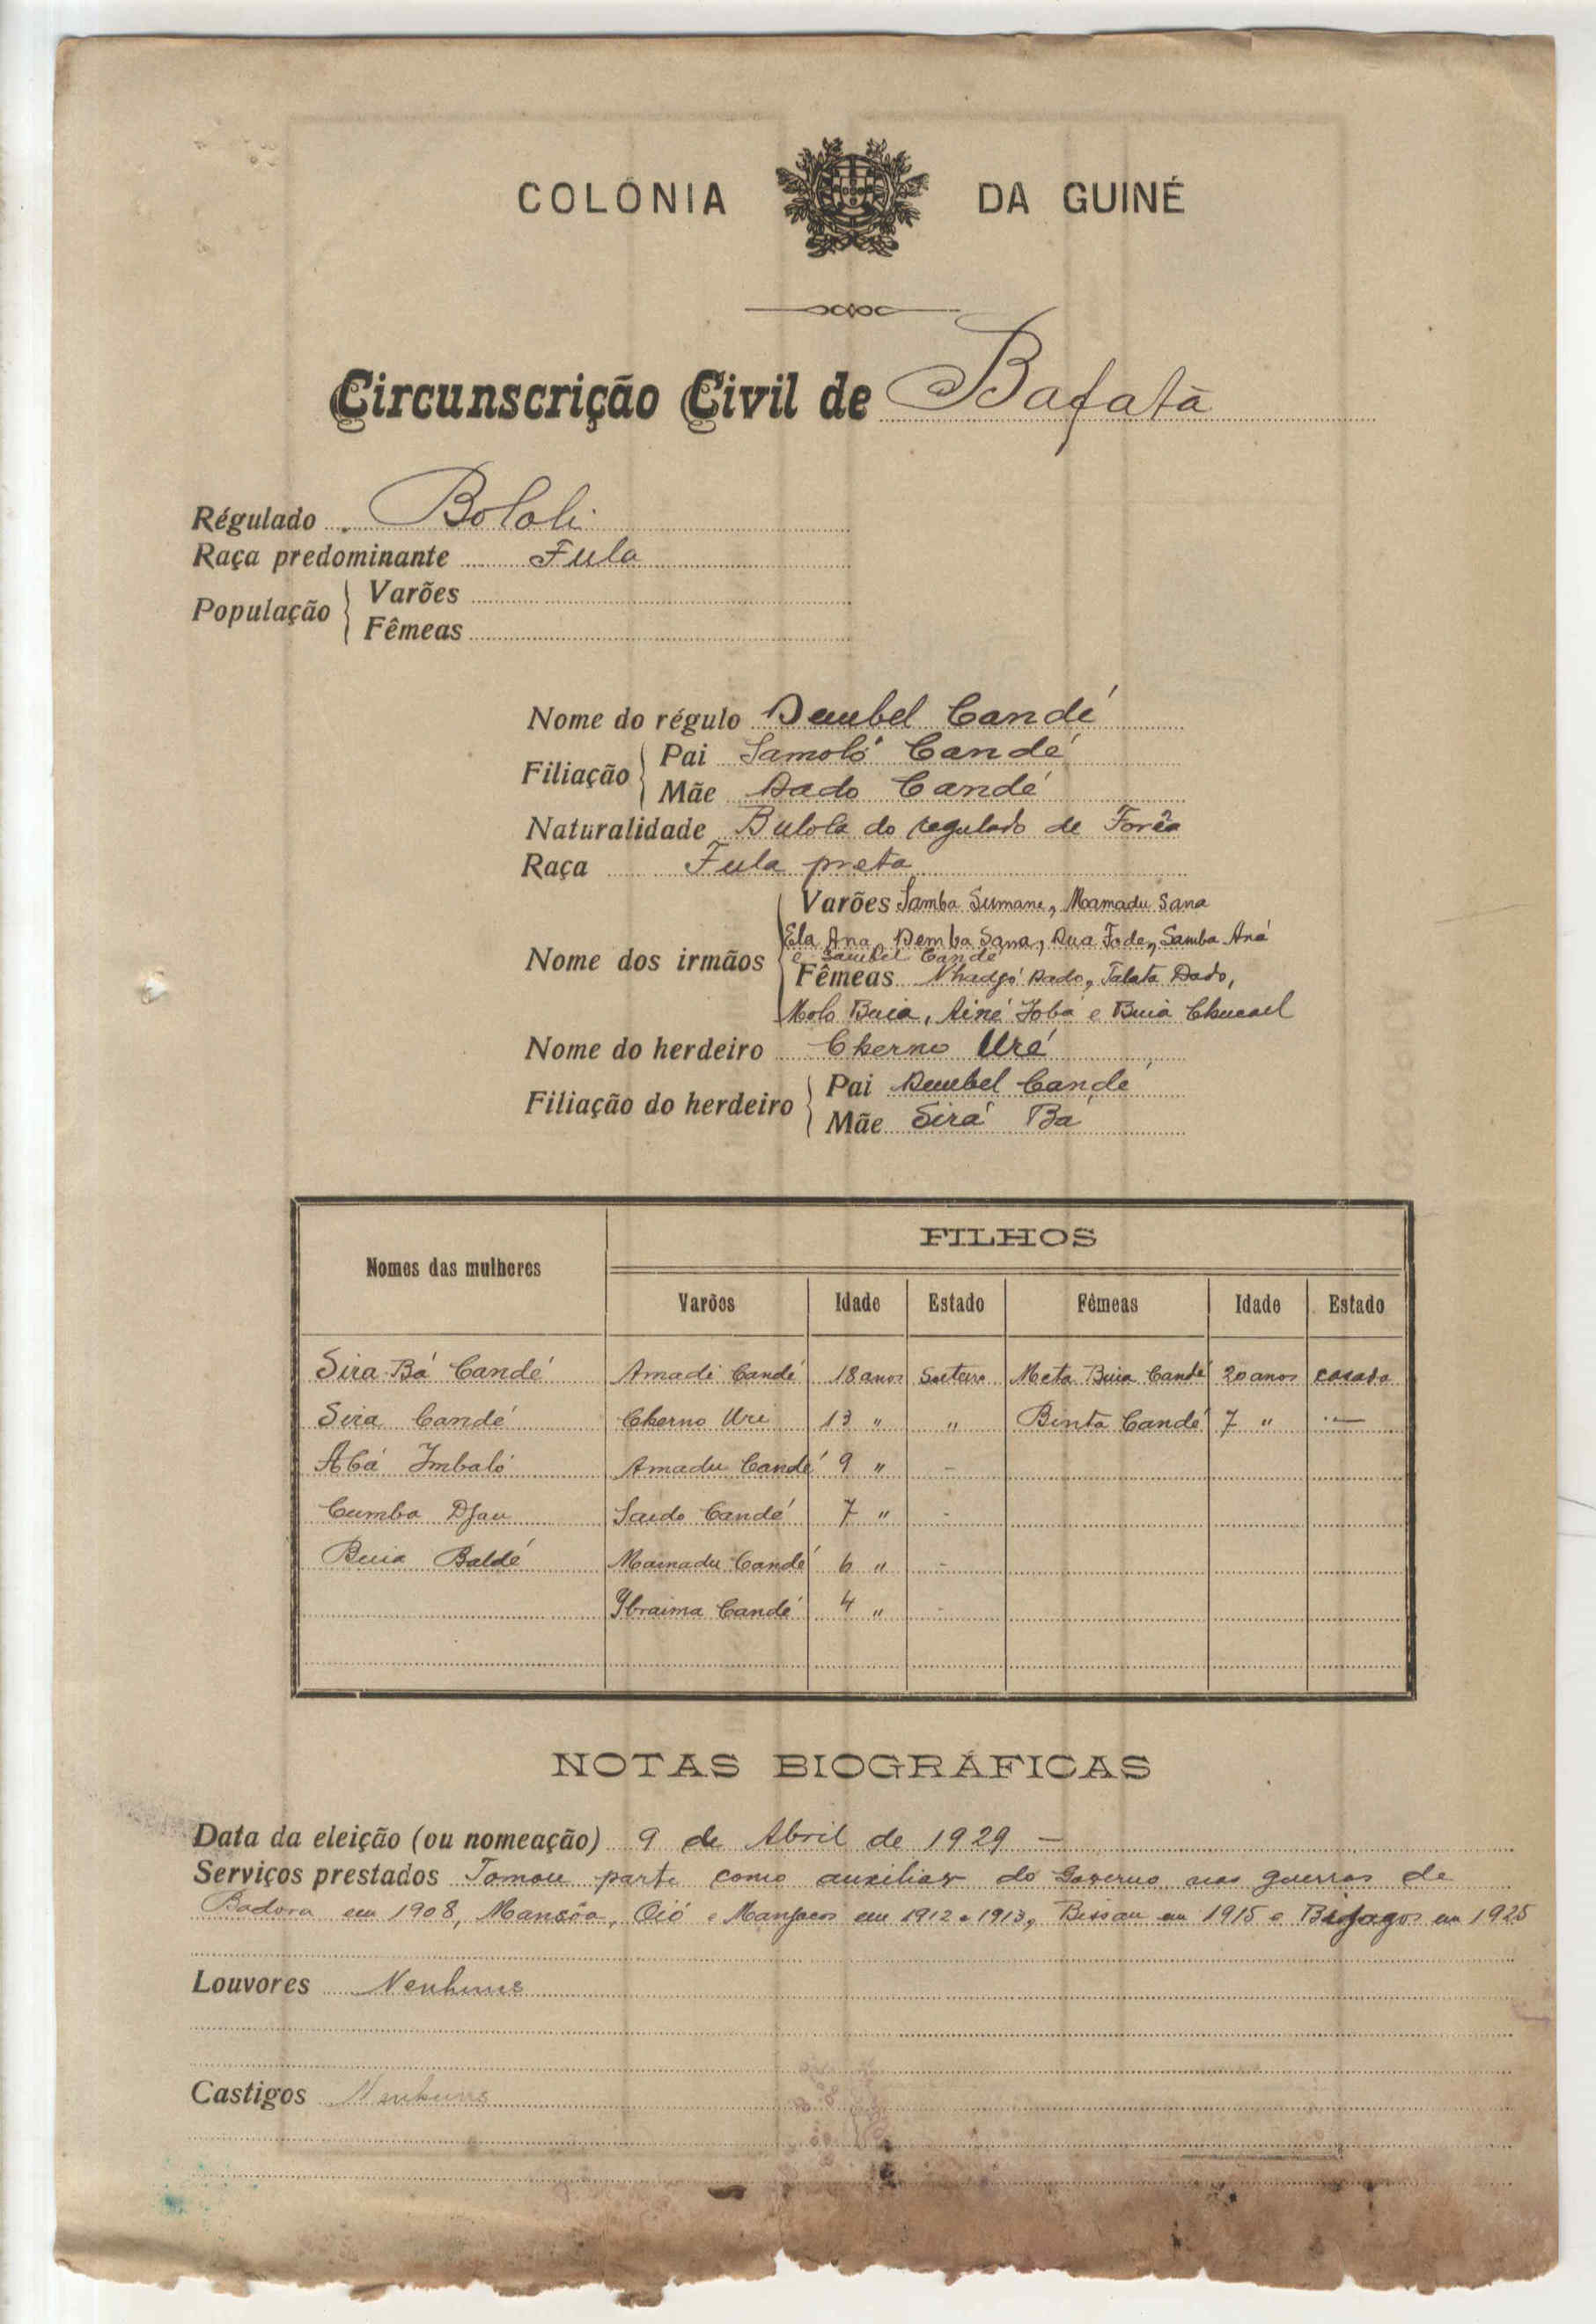 COLÓNIA DA GUINÉ
Circunscrição Civil de Bafatá
Régulado Bolola
Raça predominante Fula
População Varões
Fêmeas
Nome do régulo Dembel Candé
Filiação Pai Samoló Candé
Mãe Dado Candé
Naturalidade Bulola do regulado de Forêa
Raça Fula preta
Nome dos irmãos Varões Samba Sumane, Mamadu Sana
Ela Ana, Demba Sana, Dua Fode, Samba Aná
e Sambel Candé
Fêmeas Nhadjó Dado, Talata Dado,
Molo Buia, Ainé Jobá e Buia Chucael
Nome do herdeiro Cherno Uré
Filiação do herdeiro Pai Dembel Candé
Mãe Sirá Bá
Nomes das mulheres FILHOS
Varões Idade Estado Fêmeas Idade Estado
Sira Bá Candé Amadi Candé 18 anos Solteiro Meta Buia Candé 20 anos casada
Sira Candé Cherno Uri 13 " " Binta Candé 7 " —
Abá Imbaló Amadu Candé 9 " -
Cumba Djau Saido Candé 7 " -
Buia Baldé Mamadu Candé 6 " -
Ibraima Candé 4 " -
NOTAS BIOGRÁFICAS
Data da eleição (ou nomeação) 9 de Abril de 1929 —
Serviços prestados Tomou parte como auxiliar do Governo nas guerras de
Badora em 1908, Mansôa, Oió e Manjacos em 1912 e 1913, Bissau em 1915 e Bijagos em 1925
Louvores Nenhuns
Castigos Nenhuns